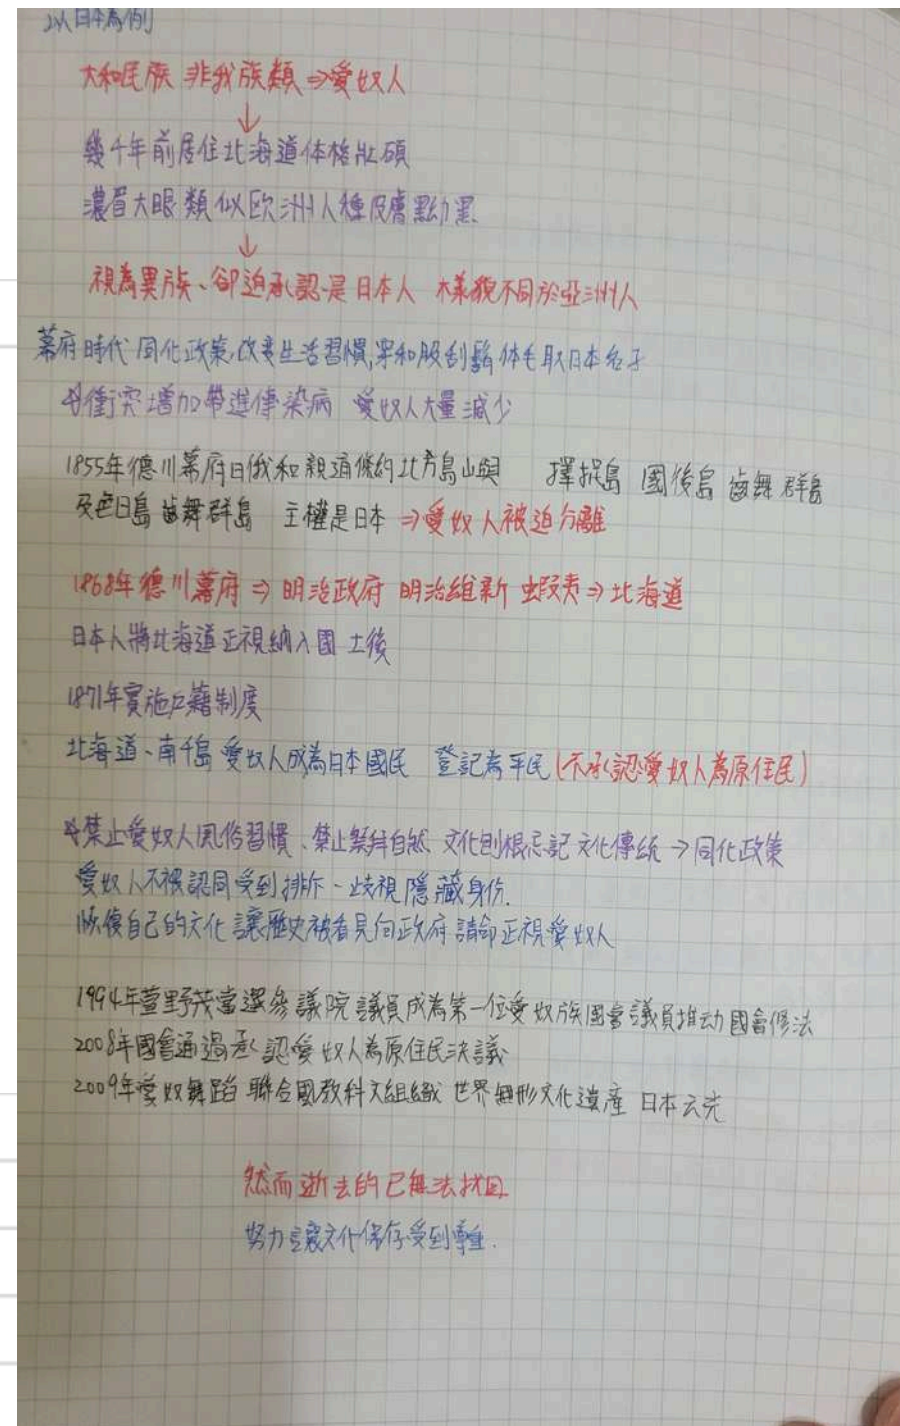 以日本為例
大和民族 非我族類⇒愛奴人
↓
幾千年前居住北海道体格壯碩
濃眉大眼 類似欧洲人種皮膚黝黑
↓
視為異族、卻迫承認是日本人 樣貌不同於亞洲人
幕府時代 同化政策,改變生活習慣,穿和服刮鬍 体毛 取日本名子
衝突增加帶進傳染病 愛奴人大量減少
1855年德川幕府日俄和親通條約北方島山與 擇捉島 國後島 齒舞群島
及色日島 齒舞群島 主權是日本⇒愛奴人被迫分離
1868年德川幕府⇒明治政府 明治維新 蝦夷⇒北海道
日本人將北海道正視納入國土後
1871年實施戶籍制度
北海道、南千島 愛奴人成為日本國民 登記為平民(不承認愛奴人為原住民)
禁止愛奴人風俗習慣、禁止祭拜自然、文化 忘記文化傳統→同化政策
愛奴人不被認同受到排斥、歧視隱藏身份.
恢復自己的文化 讓歷史被看見向政府請命正視愛奴人
1994年萱野茂當選參議院議員成為第一位愛奴族國會議員推动國會修法
2008年國會通過承認愛奴人為原住民決議
2009年愛奴舞蹈 聯合國教科文組織 世界無形文化遺產 日本
然而逝去的已無法找回
努力讓文化保存受到尊重.